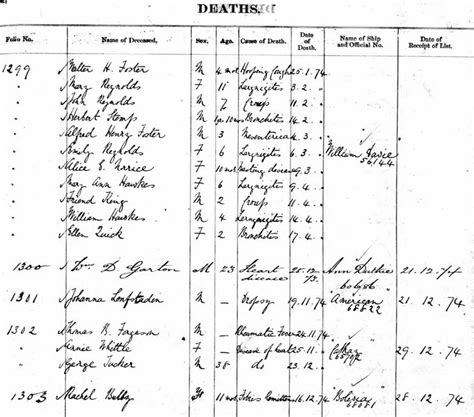 DEATHS.
Folio No. Name of Deceased. Sex. Age. Cause of Death. Date of Death. Name of Ship and Official No. Date of Receipt of List.
1299 Walter H. Foster M 4 mos Hooping Cough 25.1.74
" Mary Reynolds F 11 Laryngitis 3.2. "
" John Reynolds M 7 Croup 11.2. "
" Herbert Stemp M 10 mos Bronchitis 14.2. "
" Alfred Henry Foster M 3 Mesenterica 4.3. "
" Emily Reynolds F 6 Laryngitis 6.3. " William Davie
" Alice E. F 10 mos Wasting disease 9.3. "
" Mary Ann Hawkes F 6 Laryngitis 9.4. "
" Friend King M 2 Croup 11.4. "
" William Hawkes M 4 Laryngitis 14.4. "
" Ellen Quick F 2 Bronchitis 17.4. "
1300 Wm D. Garton M 23 Heart disease 25.12.73. Ann 60686 21.12.74
1301 Johanna M — Dropsy 19.11.74 American 65822 21.12.74
1302 Thomas B. Ferguson M — Rheumatic Fever 24.11.74
" Annie Whittle F — Disease of heart 25.11. "
" George Tucker M 38 Do 23.12. " 29.12.74
1303 Rachel 11 mos 16.12.74 Bolivia 28.12.74